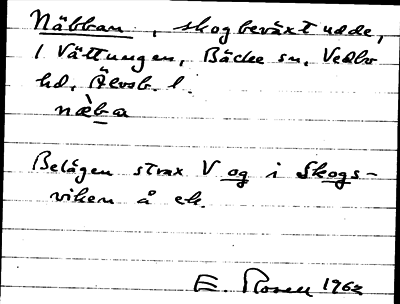 Näbban, skogbeväxt udde,
i Vättungen, Bäcke sn, Vedbo
hd, Älvsb. l.
næ̀ba
Belägen strax V og i Skogs-
viken å ek.
E. Rosell 1962